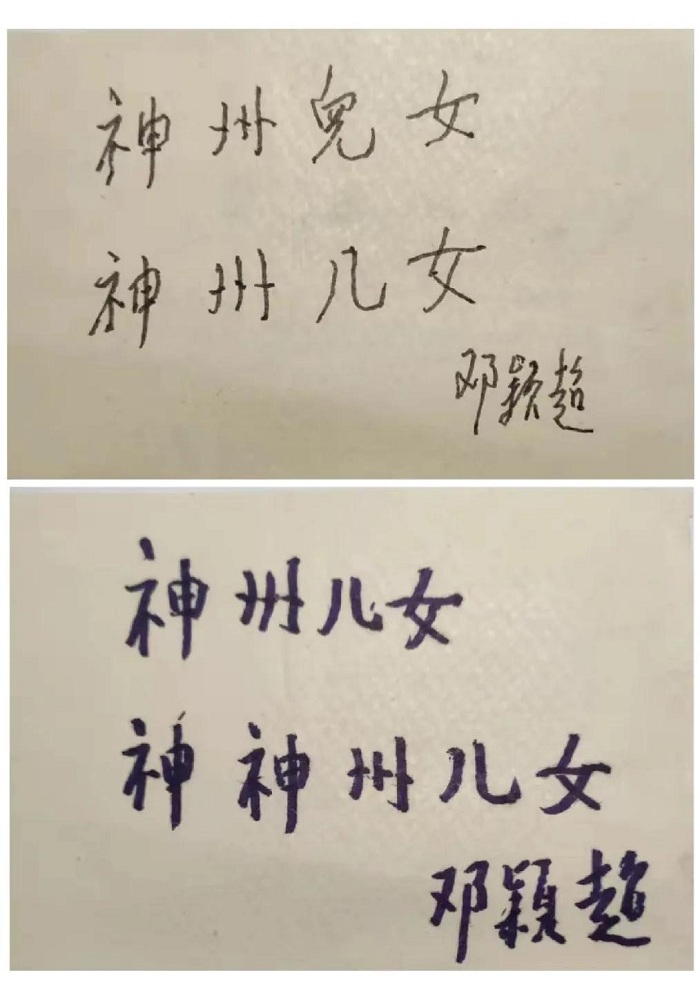 神州兒女
神州儿女
邓颖超
神州儿女
神神州儿女
邓颖超